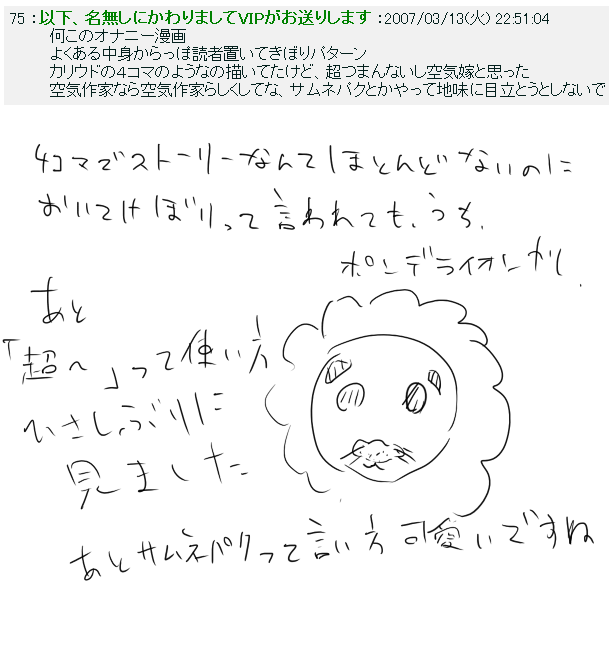 75 ：以下、名無しにかわりましてVIPがお送りします ：2007/03/13(火) 22:51:04
何このオナニー漫画
よくある中身からっぽ読者置いてきぼりパターン
カリウドの４コマのようなの描いてたけど、超つまんないし空気嫁と思った
空気作家なら空気作家らしくしてな、サムネバクとかやって地味に目立とうとしないで
4コマでストーリーなんてほとんどないのに
おいてけぼりって言われても、うち、
ポンデライオンやし.
あと
「超〜」って使い方
ひさしぶりに
見ました
あとサムネパクって言い方可愛いですね